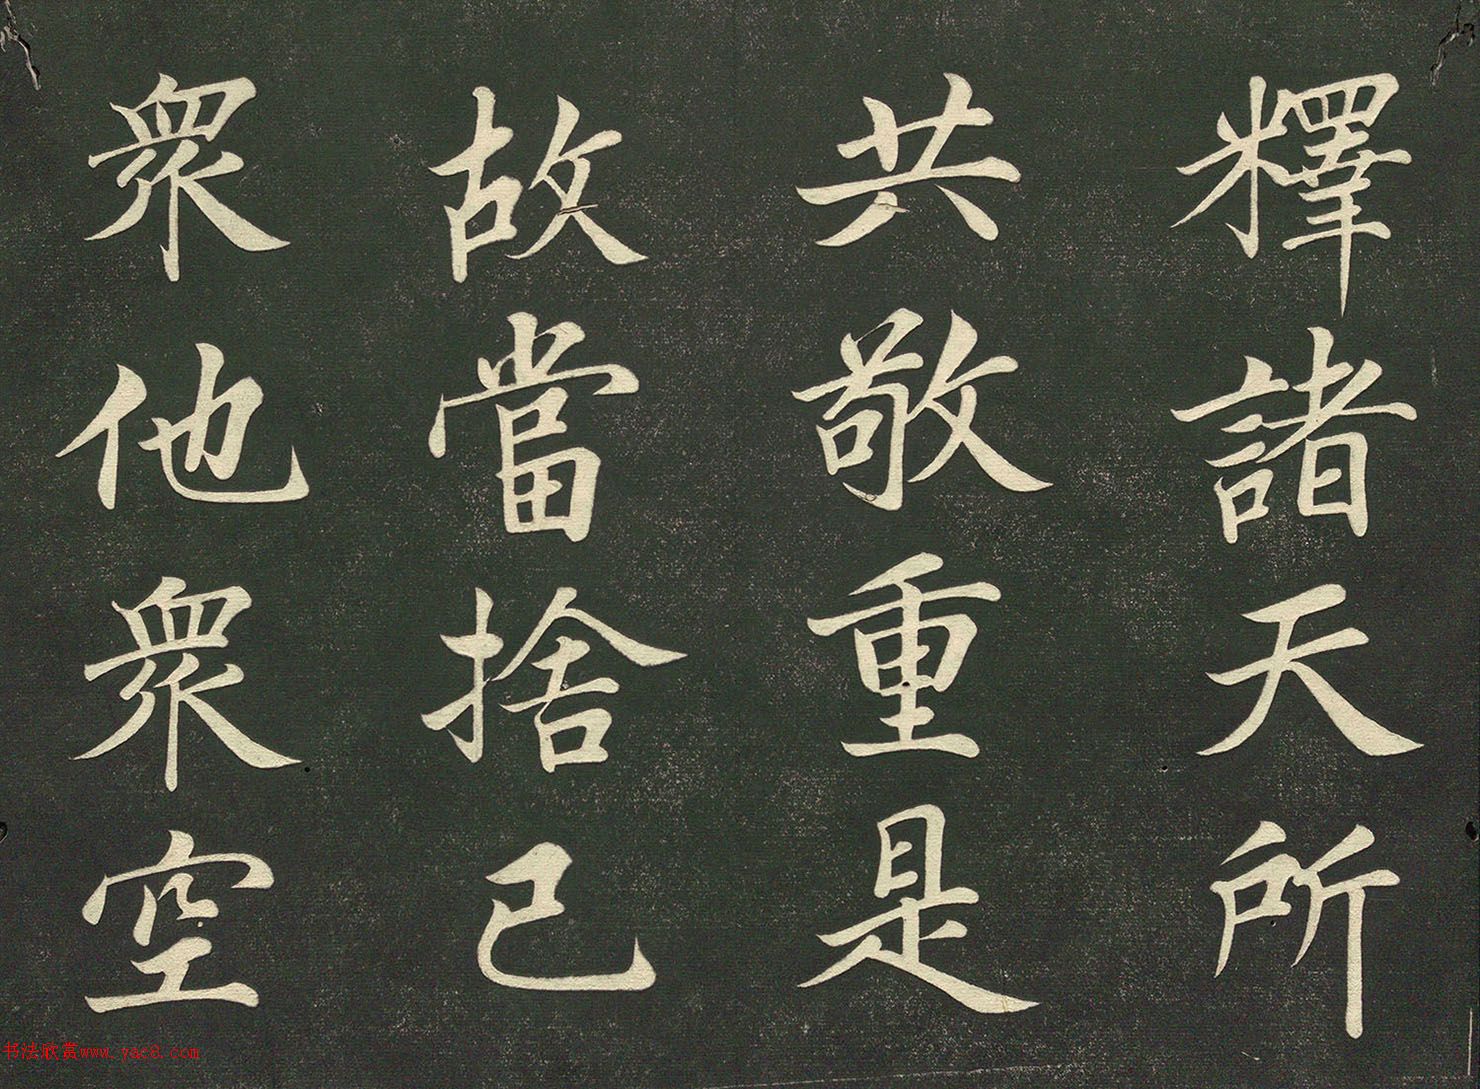 釋諸天所
共敬重是
故當捨己
眾他眾空
书法欣赏www.yac8.com